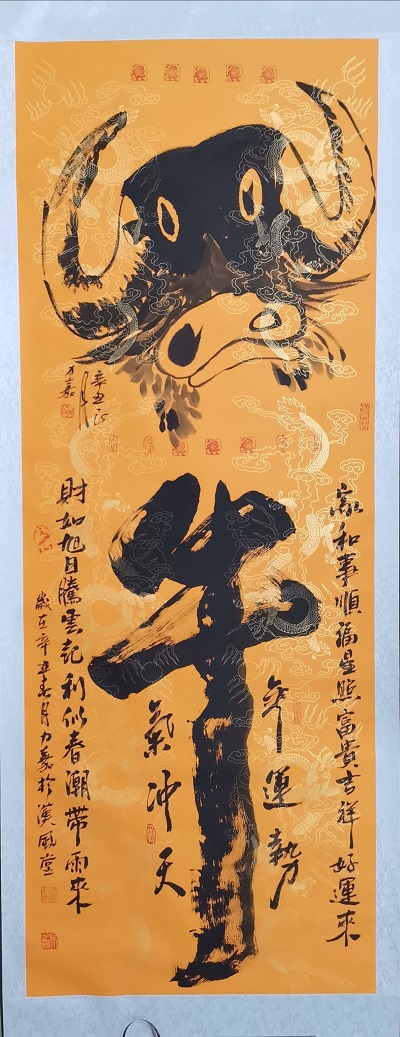 辛丑正月
力嘉
牛
家和事順福星照富貴吉祥好運來
年運勢
氣冲天
財如旭日騰雲起利似春潮帶雨來
歲在辛丑春月力嘉於漢風堂